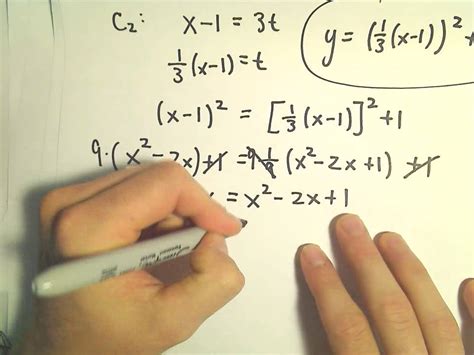 C₂: x-1 = 3t
y = (⅓(x-1))² +
⅓(x-1) = t
(x-1)² = [⅓(x-1)]² + 1
9·(x² - 2x) +1 = 9·1/9 (x² - 2x + 1) +1
x = x² - 2x + 1